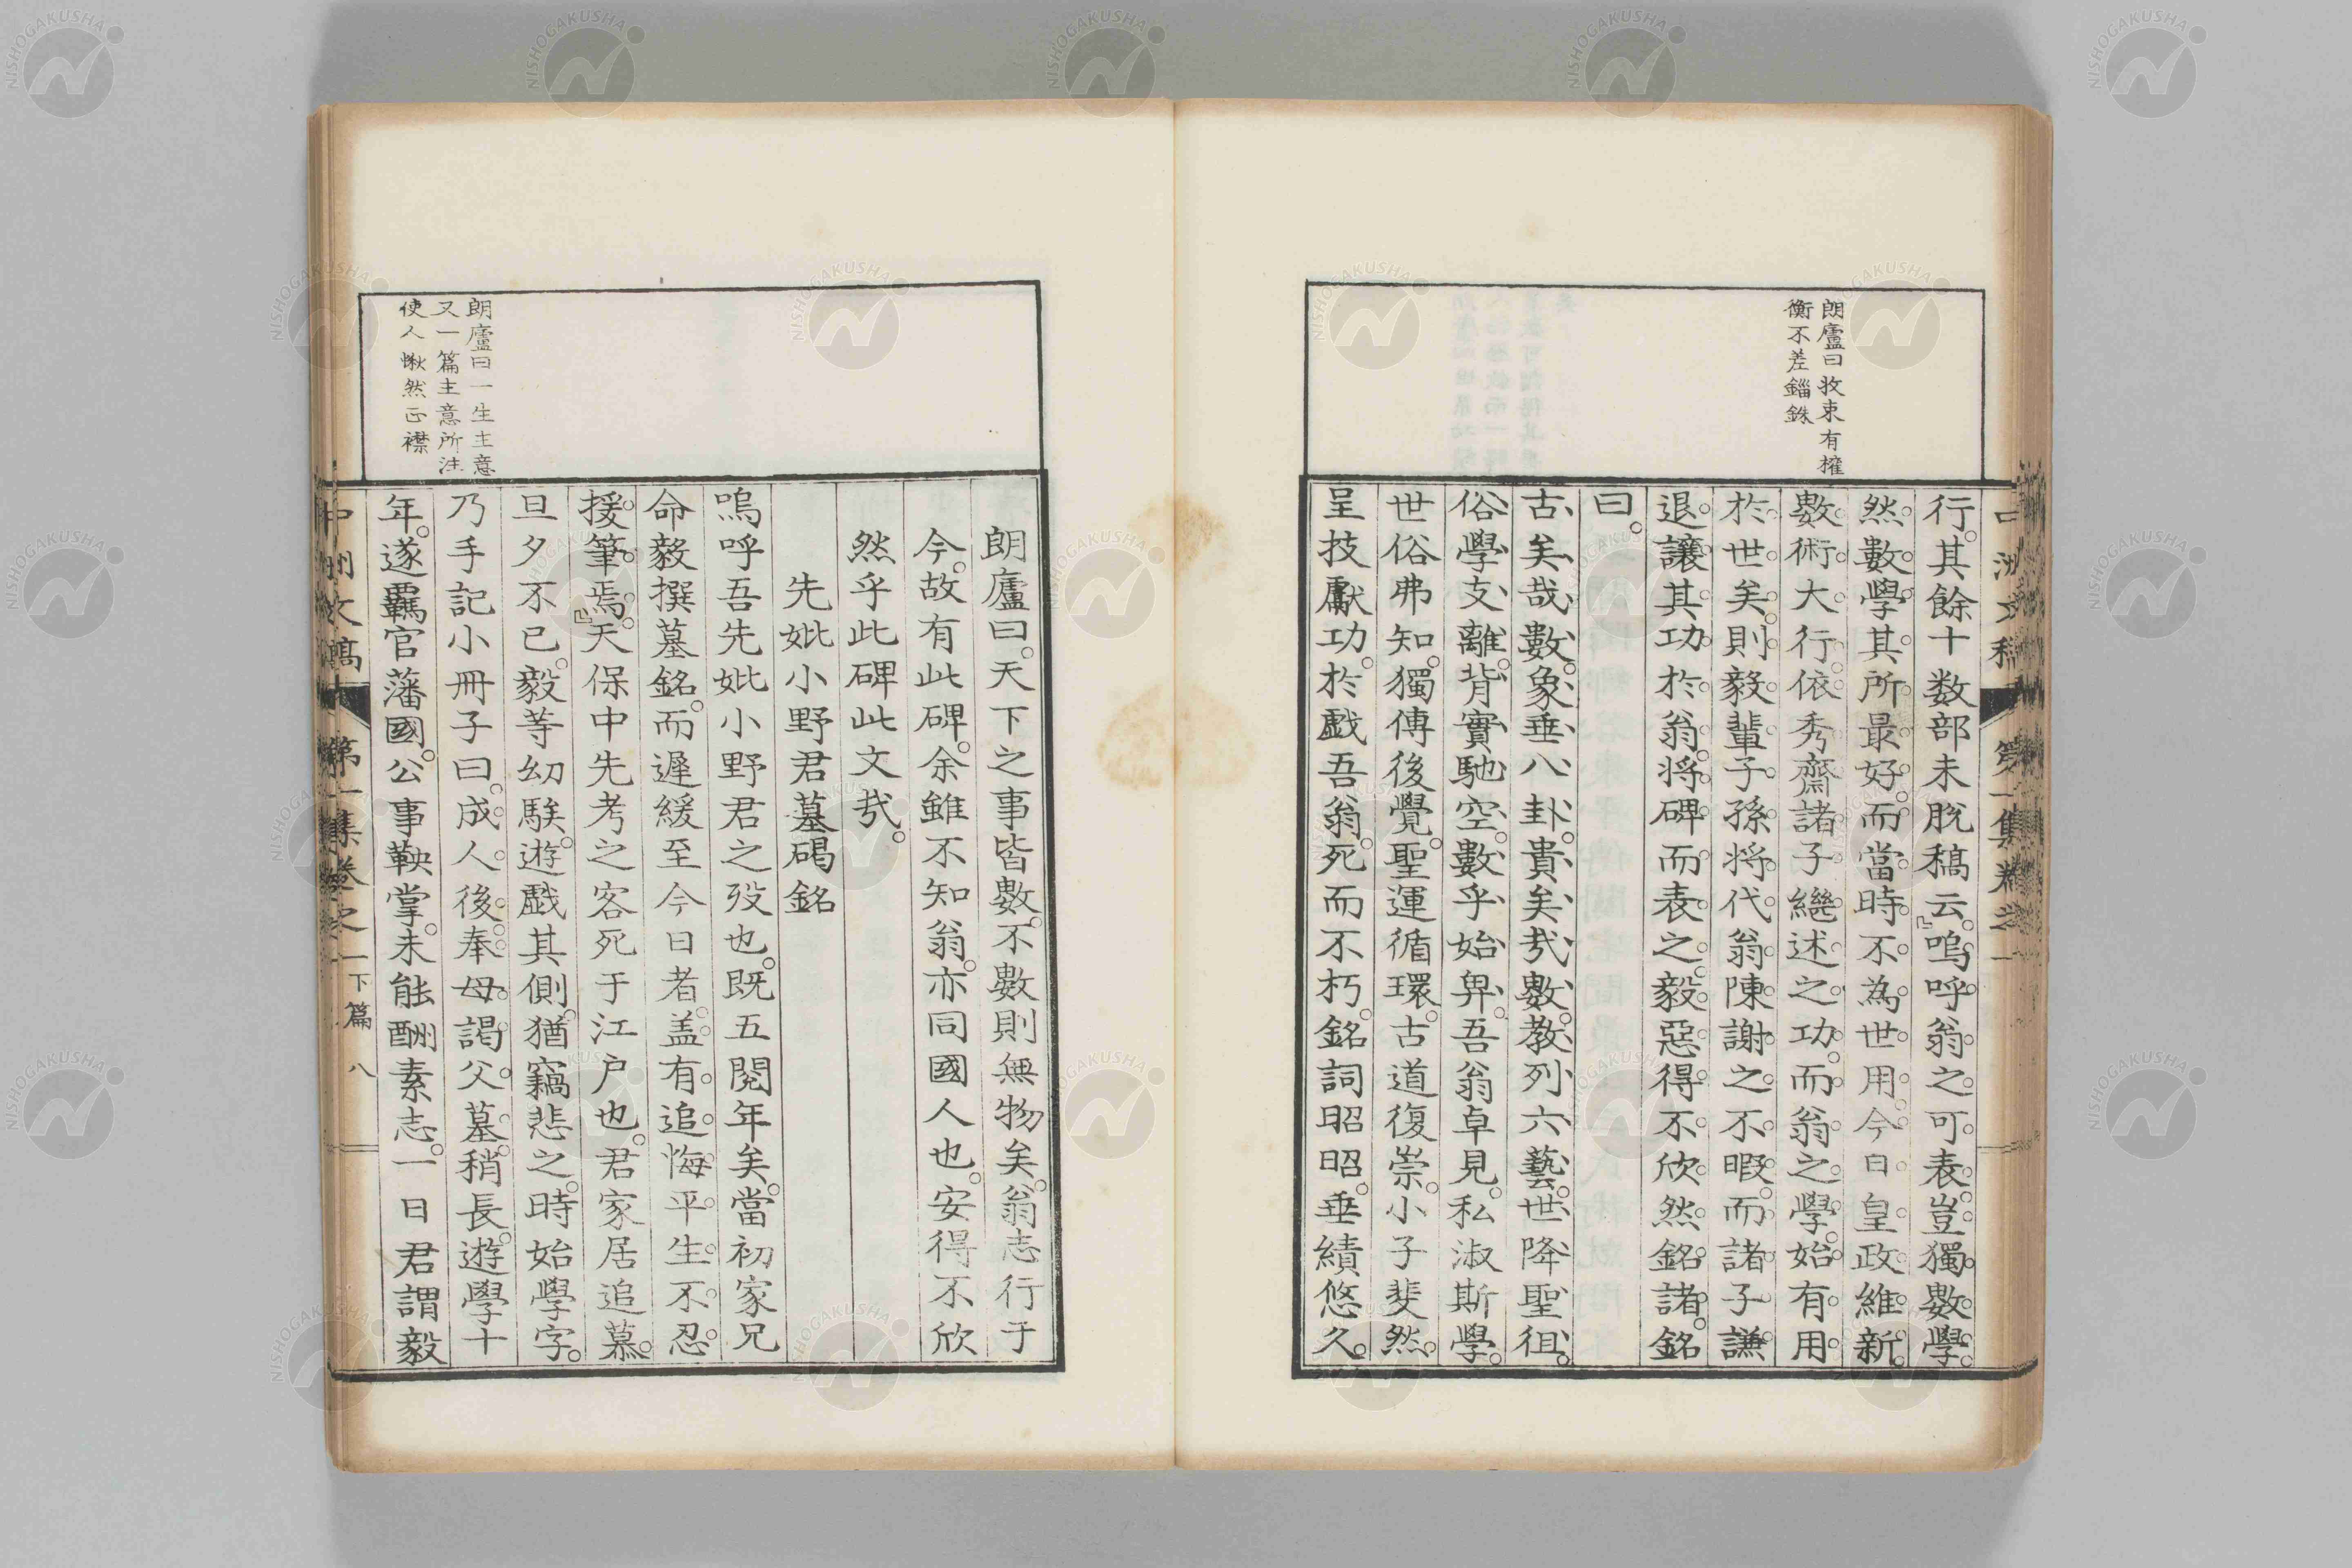 朗廬曰收束有權
衡不差錙銖
行。其餘十数部未脫稿云。嗚呼翁之可表。豈獨數學
然。數學其所最好。而當時不為世用。今日皇政維新。
數術大行。依秀齋諸子繼述之功。而翁之學。始有用
於世矣。則毅輩子孫將代翁陳謝之不暇。而諸子謙
退。讓其功於翁。將碑而表之。毅惡得不欣然銘諸。銘
曰。
古矣哉數。象垂八卦。貴矣哉數。教列六藝。世降聖徂。
俗學支離。背實馳空。數乎始畀。吾翁卓見。私淑斯學。
世俗弗知。獨傳後覺。聖運循環。古道復崇。小子斐然。
呈技獻功。於戲吾翁。死而不朽。銘詞昭昭。垂績悠久。
朗廬曰。天下之事皆數。不數則無物矣。翁志行于
今。故有此碑。余雖不知翁。亦同國人也。安得不欣
然乎此碑此文哉。
先妣小野君墓碣銘
嗚呼吾先妣小野君之歿也。既五閱年矣。當初家兄
命毅撰墓銘。而遲緩至今日者。盖有追悔平生。不忍
援筆焉。天保中先考之客死于江戶也。君家居追慕。
旦夕不已。毅等幼騃。遊戲其側。猶竊悲之。時始學字。
乃手記小冊子曰。成人後。奉母謁父墓。稍長。遊學十
年。遂羈官藩國。公事鞅掌。未能酬素志。一日君謂毅
朗廬曰一生主意
又一篇主意所注
使人愀然正襟
中洲文稿 第一集卷之一 下篇 八